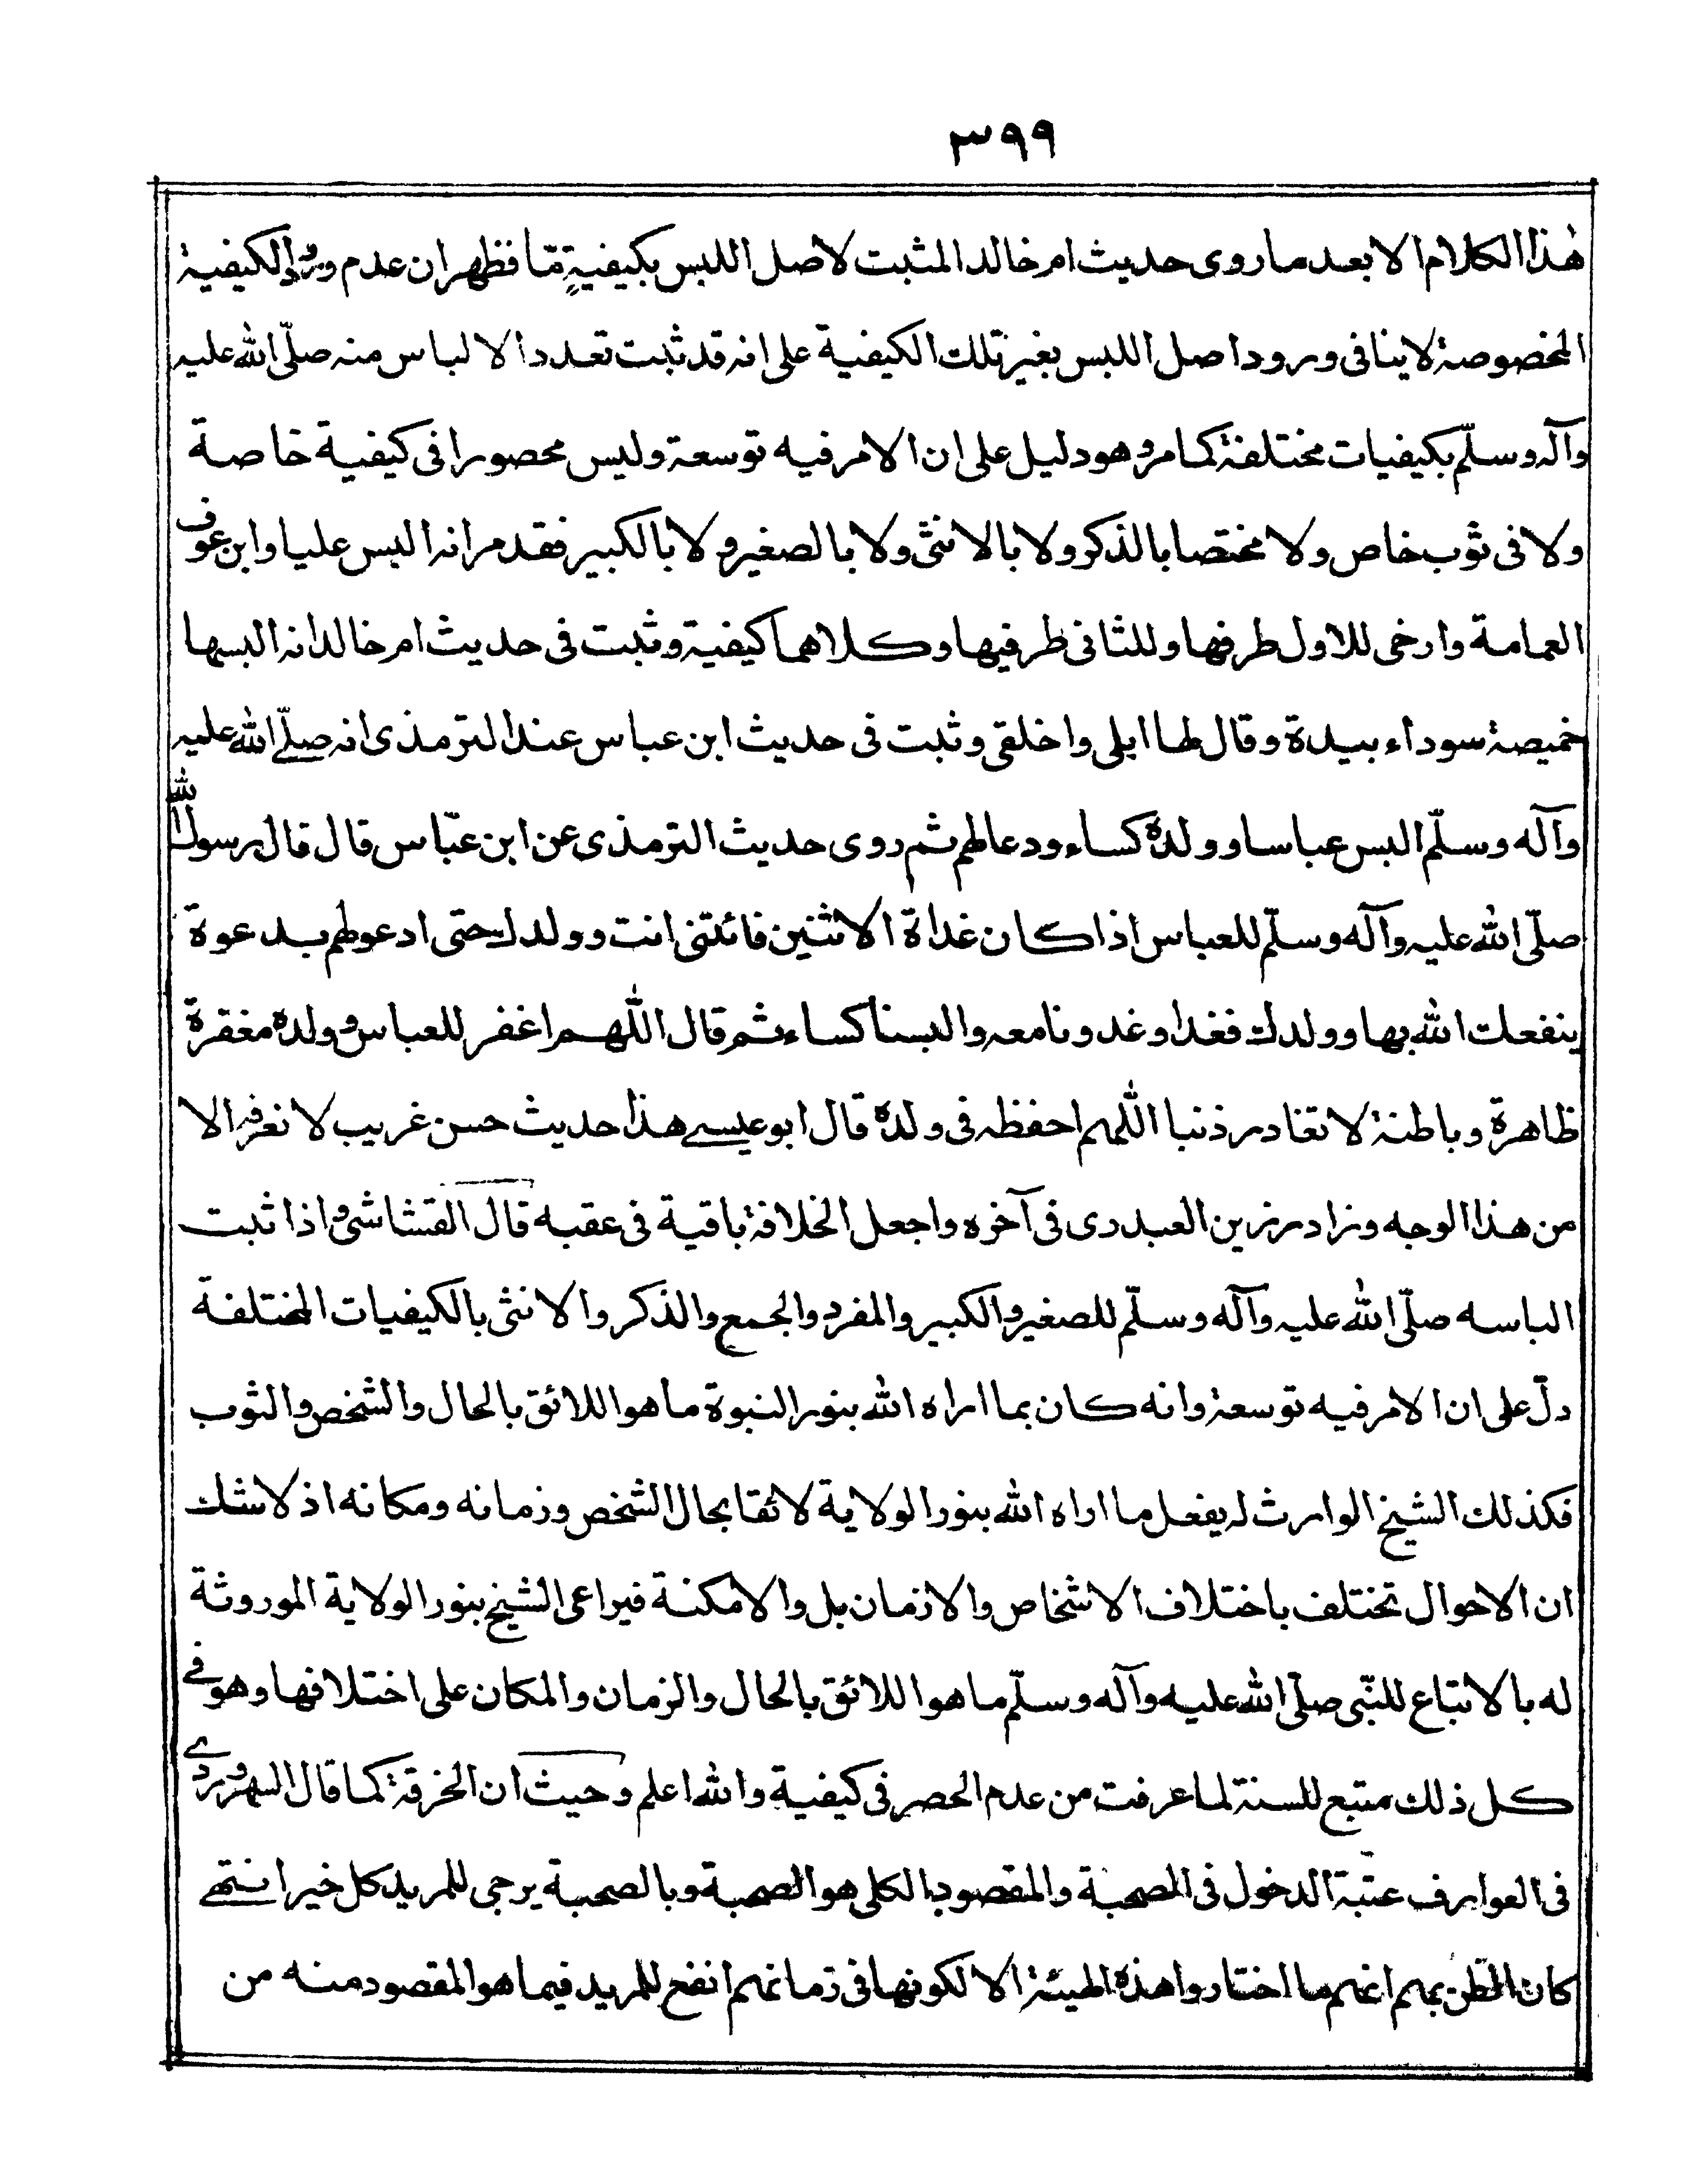 ٣٩٩
هٰذا الكلام الا بعد ما روى حديث ام خالد المثبت لاصل اللبس بكيفيةٍ مّا فظهر ان عدم ورود الكيفية
المخصوصة لا ينافى ورود اصل اللبس بغير تلك الكيفية على انه قد ثبت تعدد الالباس منه صلّى الله عليه
وآله وسلّم بكيفيات مختلفة كما مر وهو دليل على ان الامر فيه توسعة وليس محصورا فى كيفية خاصة
ولا فى ثوب خاص ولا مختصا بالذكر ولا بالانثى ولا بالصغير ولا بالكبير فقد مر انه البس عليا وابن عوف
العمامة وارخى للاول طرفها وللثانى طرفيها وكلاهما كيفية وثبت فى حديث ام خالد انه البسها
خميصة سوداء بيدة وقال لها ابلى واخلقى وثبت فى حديث ابن عباس عند الترمذى انه صلّے الله عليه
وآله وسلّم البس عباسا وولدهٗ كساء ودعا لهم ثم روى حديث الترمذى عن ابن عبّاس قال قال رسول الله
صلّى الله عليه وآله وسلّم للعباس اذا كان غداة الاثنين فائتنى انت وولدك حتى ادعو لهم بدعوة
ينفعك الله بها وولدك فغدا وغدونا معه والبسنا كساء ثم قال اللّهم اغفر للعباس وولده مغفرة
ظاهرة وباطنة لا تغادر ذنبا اللّهم احفظه فى ولدهٗ قال ابو عيسے هذا حديث حسن غريب لا نعرفه الا
من هذا الوجه وزاد رزين العبدرى فى آخره واجعل الخلافة باقية فى عقبه قال القشاشى واذا ثبت
الباسه صلّى الله عليه وآله وسلّم للصغير والكبير والمفرد والجمع والذكر والانثى بالكيفيات المختلفة
دلّ على ان الامر فيه توسعة وانه كان بما اراه الله بنور النبوة ما هو اللائق بالحال والشخص والثوب
فكذلك الشيخ الوارث له يفعل ما اراه الله بنور الولاية لائقا بحال الشخص وزمانه ومكانه اذ لا شك
ان الاحوال تختلف باختلاف الاشخاص والازمان بل والامكنة فيراعى الشيخ بنور الولاية الموروثة
له بالاتباع للنّبى صلّى الله عليه وآله وسلّم ما هو اللائق بالحال والزمان والمكان على اختلافها وهو فے
كل ذلك متبع للسنة لما عرفت من عدم الحصر فى كيفية والله اعلم وحيث ان الخرقة كما قال السهروردے
فى العوارف عتبة الدخول فى الصحبة والمقصود الكلى هو الصحبة وبالصحبة يرجى للمريد كل خير انتهے
كان الظن بهم انهم ما اختاروا هذه الهيئة الا لكونها فى زمانهم انفع للمريد فيما هو المقصود منه من